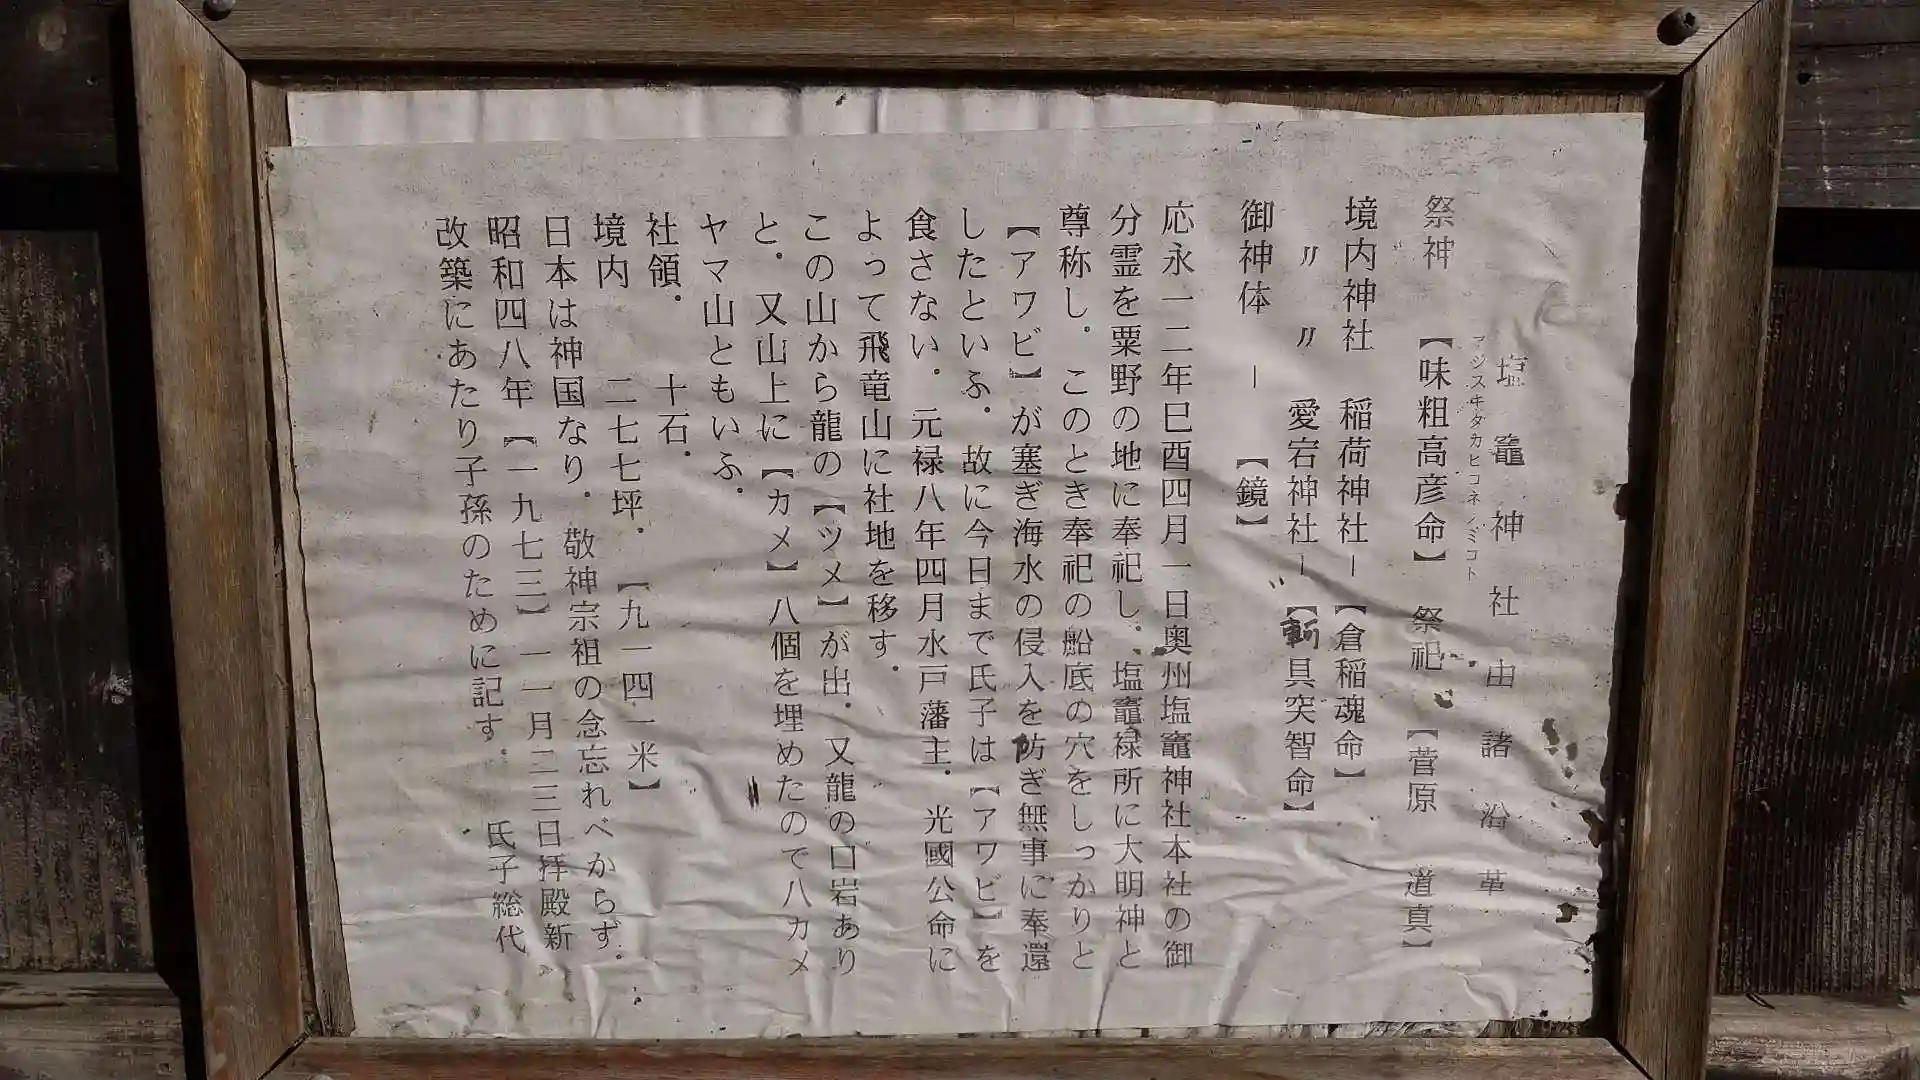 塩竈神社由諸沿革
アジスキタカヒコネノミコト
祭神 【味粗高彦命】 祭祀 【菅原 道真】
境内神社 稲荷神社―【倉稲魂命】
〃 〃 愛宕神社―【斬具突智命】
御神体 ― 【鏡】
応永一二年巳酉四月一日奥州塩竈神社本社の御
分霊を粟野の地に奉祀し．塩竈禄所に大明神と
尊称し．このとき奉祀の船底の穴をしっかりと
【アワビ】が塞ぎ海水の侵入を防ぎ無事に奉還
したといふ．故に今日まで氏子は【アワビ】を
食さない．元禄八年四月水戸藩主．光國公命に
よって飛竜山に社地を移す．
この山から龍の【ツメ】が出．又龍の口岩あり
と．又山上に【カメ】八個を埋めたので八カメ
ヤマ山ともいふ．
社領． 十石．
境内 二七七坪．【九一四一米】
日本は神国なり．敬神宗祖の念忘れべからず．
昭和四八年【一九七三】一一月二三日拝殿新
改築にあたり子孫のために記す． 氏子総代